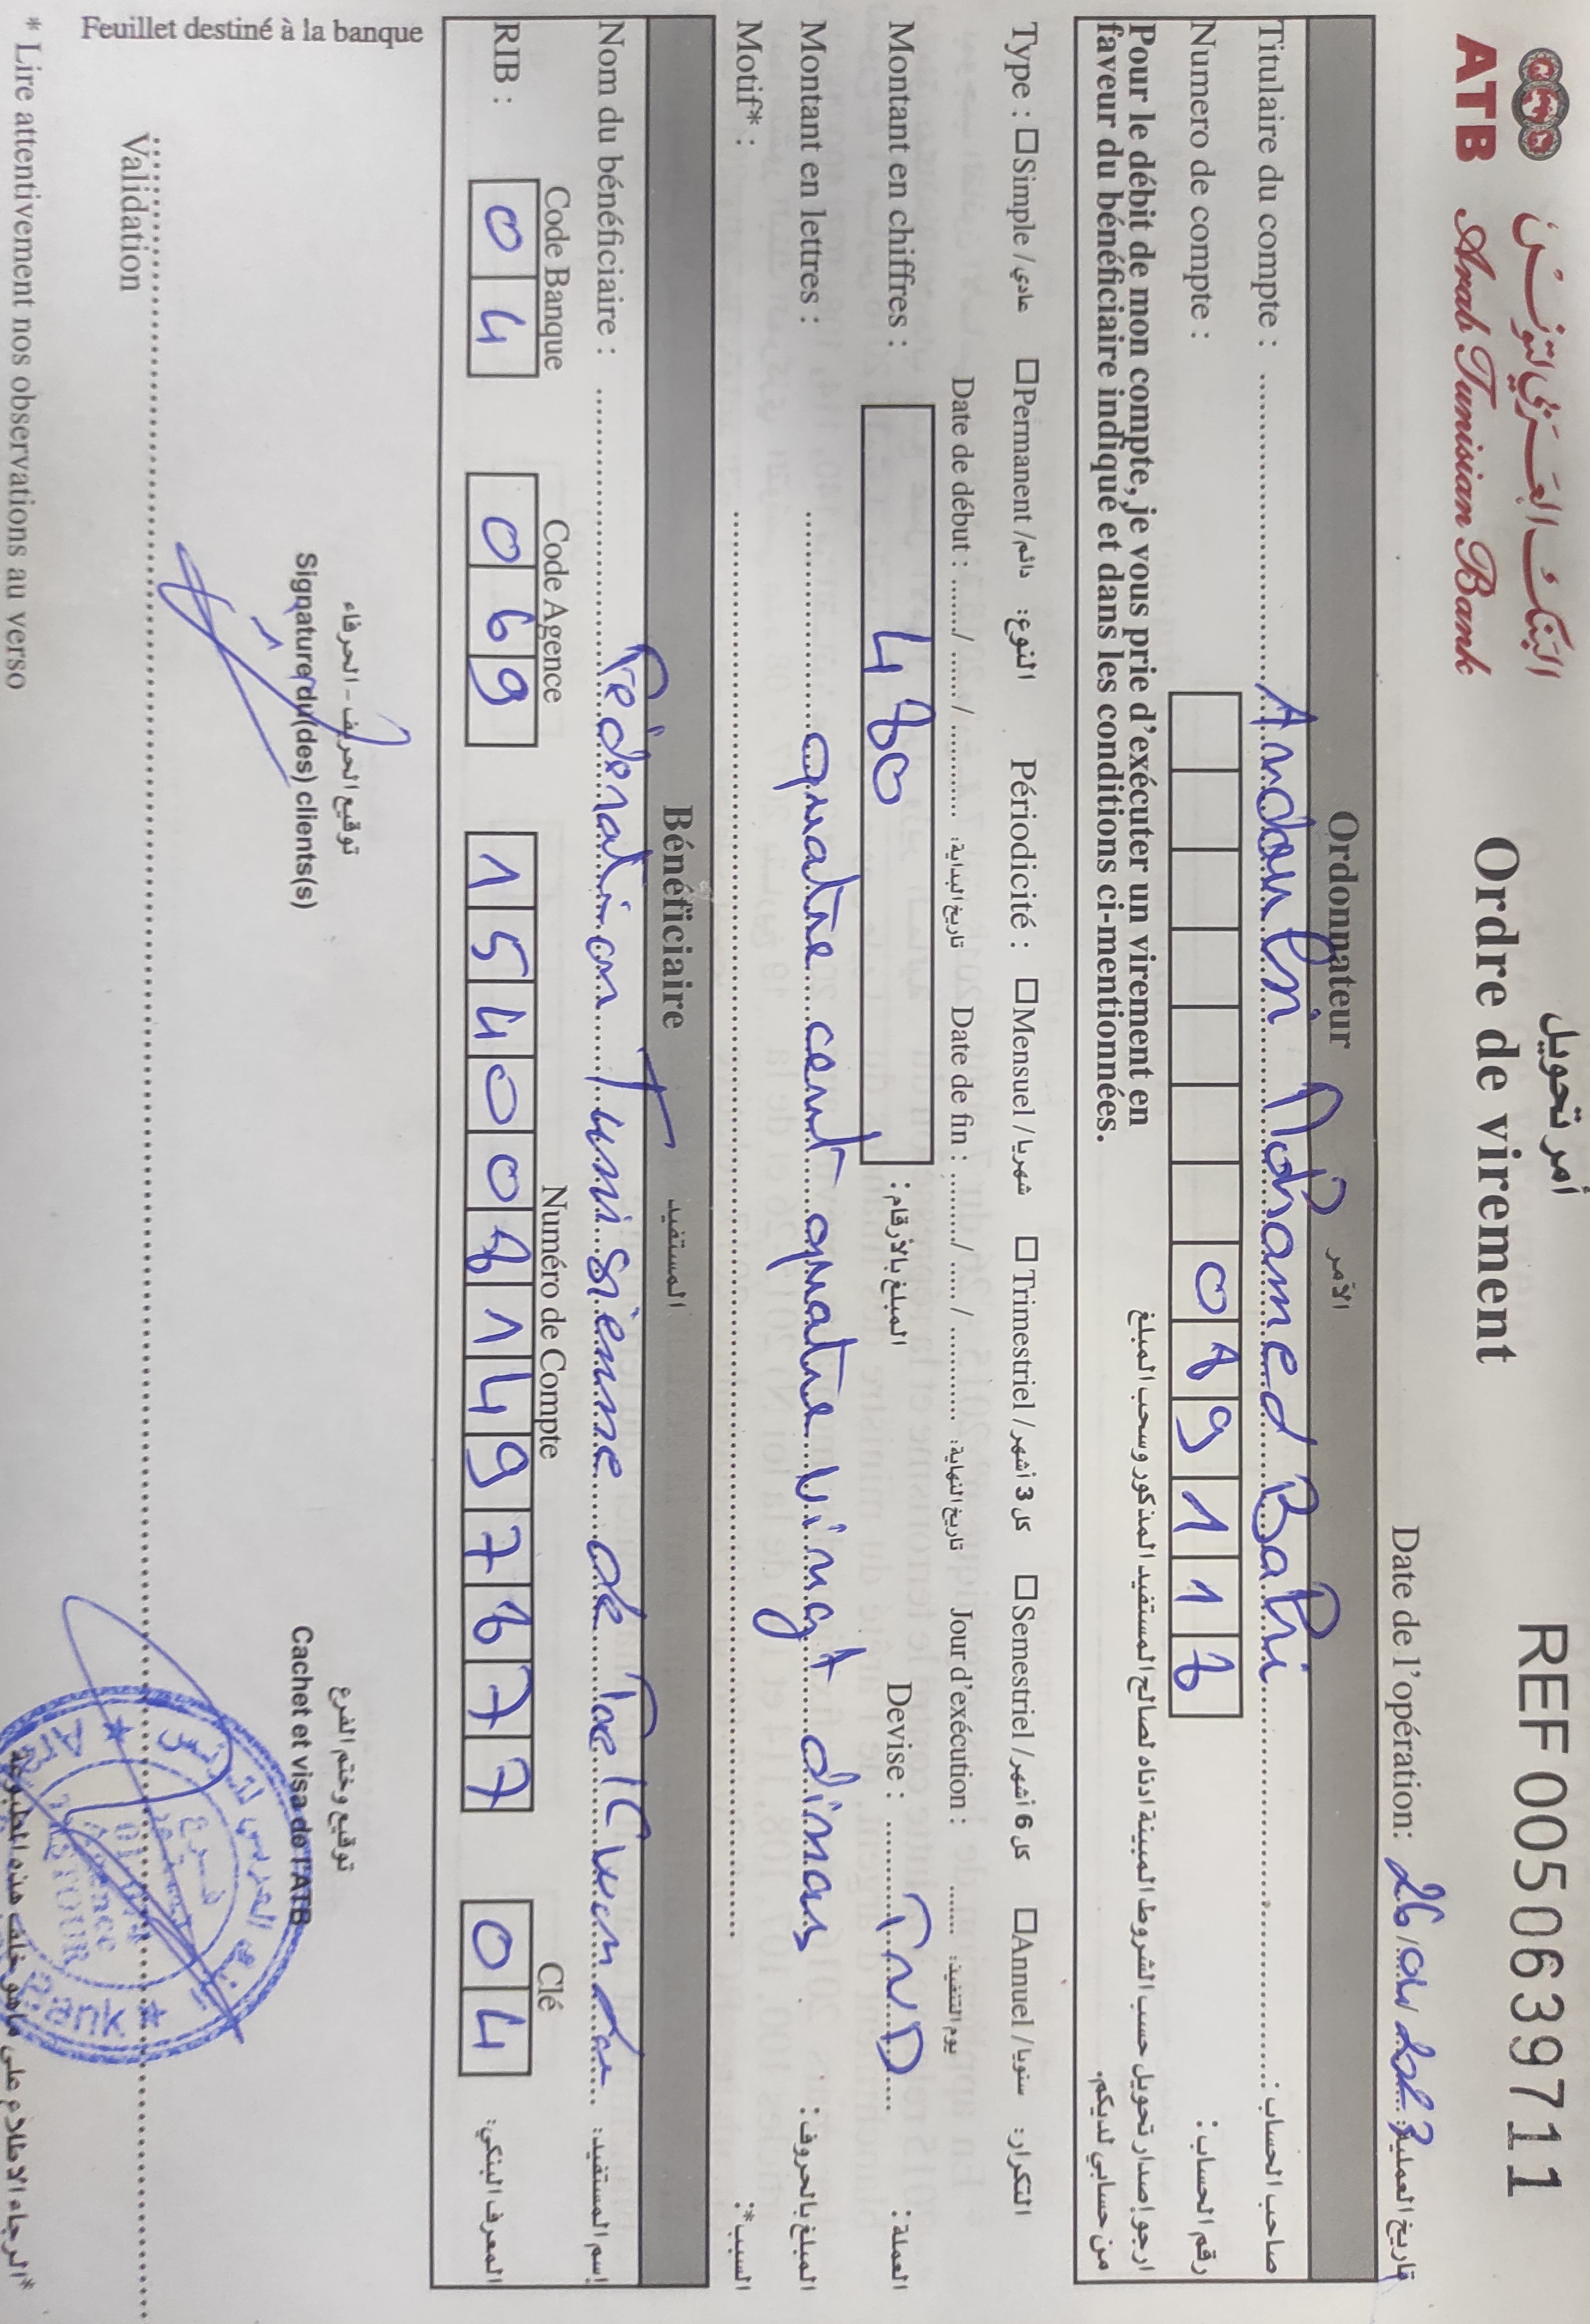 البنك العربي لتونس
ATB Arab Tunisian Bank
أمر تحويل
Ordre de virement
REF 0050639711
Date de l'opération: 26/01/2023 تاريخ العملية:
Ordonnateur الآمر
Titulaire du compte : Mohamed Bahi صاحب الحساب :
Numero de compte : 0 8 9 1 1 8 رقم الحساب :
Pour le débit de mon compte, je vous prie d'exécuter un virement en
faveur du bénéficiaire indiqué et dans les conditions ci-mentionnées.
ارجو إصدار تحويل حسب الشروط المبينة ادناه لصالح المستفيد المذكور وسحب المبلغ
من حسابي لديكم.
Type : □Simple / عادي □Permanent / دائم النوع: Périodicité : □Mensuel / شهريا □Trimestriel / كل 3 أشهر □Semestriel / كل 6 أشهر □Annuel / سنويا التكرار:
Date de début : ....../ ....../ ........... تاريخ البداية: Date de fin : ......../ ...../ ............ تاريخ النهاية: Jour d'exécution : ....... يوم التنفيذ:
Montant en chiffres : 480 المبلغ بالأرقام: Devise : TND العملة:
Montant en lettres : quatre cent quatre vingt dinars المبلغ بالحروف:
Motif* : السبب*:
Bénéficiaire المستفيد
Nom du bénéficiaire : Fédération Tunisienne de Taekwondo إسم المستفيد:
Code Banque Code Agence Numéro de Compte Clé
RIB : 0 4 0 6 9 1 5 4 0 0 8 1 4 9 7 8 7 7 0 4 المعرف البنكي:
توقيع الحريف - الحرفاء
Signature du(des) clients(s)
توقيع وختم الفرع
Cachet et visa de l'ATB
Validation
Feuillet destiné à la banque
* Lire attentivement nos observations au verso
*الرجاء الاطلاع على ماهو خلف هذه المطبوعة